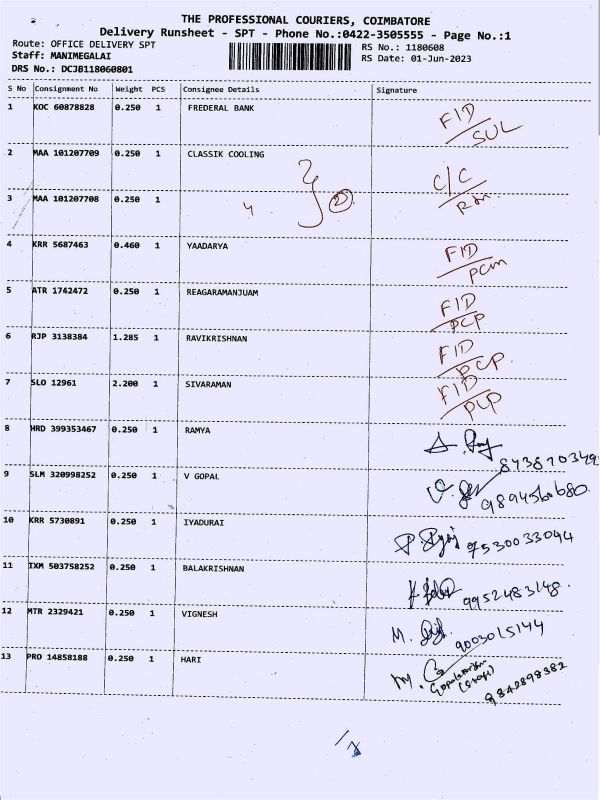 THE PROFESSIONAL COURIERS, COIMBATORE
Delivery Runsheet - SPT - Phone No.:0422-3505555 - Page No.:1
Route: OFFICE DELIVERY SPT
RS No.: 1180608
Staff: MANIMEGALAI
RS Date: 01-Jun-2023
DRS No.: DCJB118060801
S No Consignment No Weight PCS Consignee Details Signature
1 KOC 60878828 0.250 1 FREDERAL BANK FID/SUL
2 MAA 101207709 0.250 1 CLASSIK COOLING C/C
3 MAA 101207708 0.250 1 2
4 KRR 5687463 0.460 1 YAADARYA FID/PCM
5 ATR 1742472 0.250 1 REAGARAMANJUAM FID/PCP
6 RJP 3138384 1.285 1 RAVIKRISHNAN FID/PCP
7 SLO 12961 2.200 1 SIVARAMAN FID/PCP
8 HRD 399353467 0.250 1 RAMYA
9 SLM 320998252 0.250 1 V GOPAL
10 KRR 5730891 0.250 1 IYADURAI 9530033094
11 IXM 503758252 0.250 1 BALAKRISHNAN 9952483148
12 MTR 2329421 0.250 1 VIGNESH M. 9003015144
13 PRO 14858188 0.250 1 HARI M. 9842898382